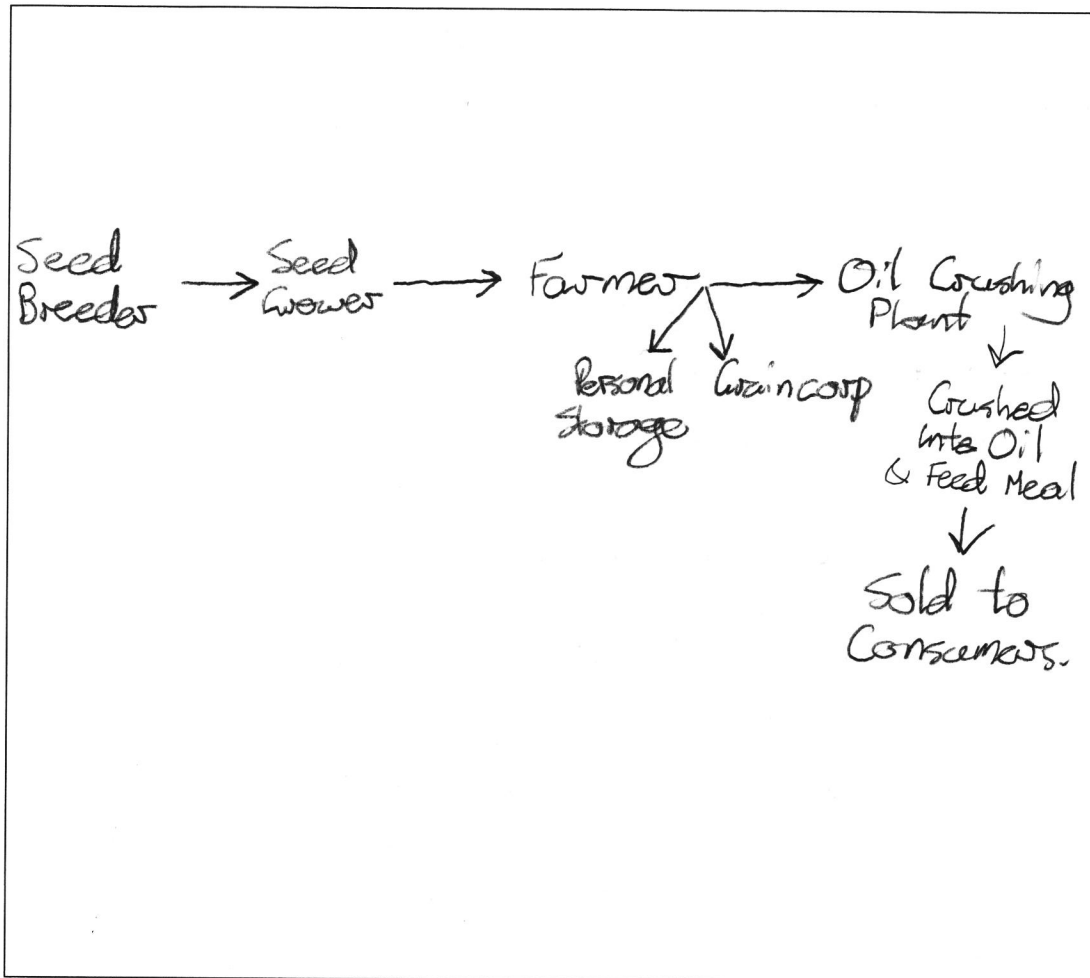 Seed
Breeder
Seed
Grower
Farmer
Oil Crushing
Plant
Personal
Storage
Graincorp
Crushed
into Oil
& Feed Meal
Sold to
Consumers.